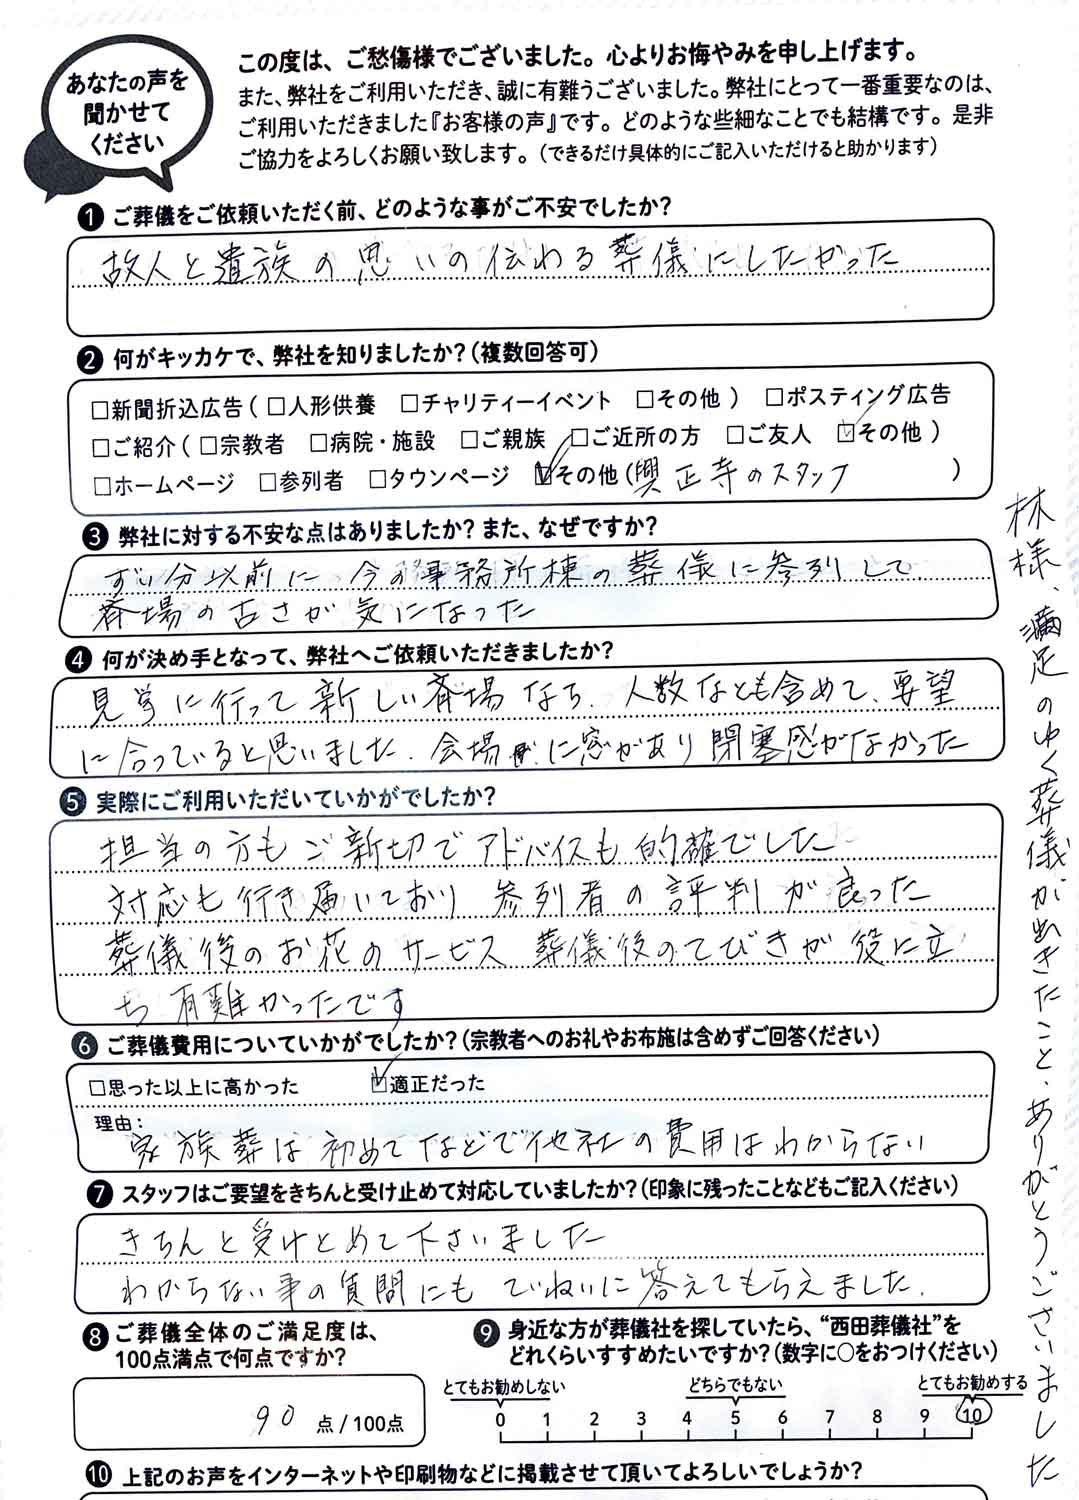 あなたの声を
聞かせて
ください
この度は、ご愁傷様でございました。心よりお悔やみを申し上げます。
また、弊社をご利用いただき、誠に有難うございました。弊社にとって一番重要なのは、
ご利用いただきました『お客様の声』です。どのような些細なことでも結構です。是非
ご協力をよろしくお願い致します。（できるだけ具体的にご記入いただけると助かります）
❶ ご葬儀をご依頼いただく前、どのような事がご不安でしたか？
故人と遺族の思いの伝わる葬儀にしたかった
❷ 何がキッカケで、弊社を知りましたか？（複数回答可）
□新聞折込広告（ □人形供養 □チャリティーイベント □その他 ） □ポスティング広告
□ご紹介（ □宗教者 □病院・施設 □ご親族 □ご近所の方 □ご友人 ☑その他 ）
□ホームページ □参列者 □タウンページ ☑その他（興正寺のスタッフ ）
❸ 弊社に対する不安な点はありましたか？ また、なぜですか？
ずい分以前に 今の事務所棟の葬儀に参列して、
斎場の古さが気になった
❹ 何が決め手となって、弊社へご依頼いただきましたか？
見学に行って新しい斎場なら、人数なども含めて、要望
に合っていると思いました。会場に窓があり閉塞感がなかった
❺ 実際にご利用いただいていかがでしたか？
担当の方もご新切でアドバイスも的確でした
対応も行き届いており 参列者の評判が良った
葬儀後のお花のサービス 葬儀後のてびきが役に立
ち有難かったです
❻ ご葬儀費用についていかがでしたか？（宗教者へのお礼やお布施は含めずご回答ください）
□思った以上に高かった ☑適正だった
理由：
家族葬は初めてなどで他社の費用はわからない
❼ スタッフはご要望をきちんと受け止めて対応していましたか？（印象に残ったことなどもご記入ください）
きちんと受けとめて下さいました
わからない事の質問にも ていねいに答えてもらえました。
❽ ご葬儀全体のご満足度は、
100点満点で何点ですか？
90 点 / 100点
❾ 身近な方が葬儀社を探していたら、“西田葬儀社”を
どれくらいすすめたいですか？（数字に○をおつけください）
とてもお勧めしない どちらでもない とてもお勧めする
0 1 2 3 4 5 6 7 8 9 10
❿ 上記のお声をインターネットや印刷物などに掲載させて頂いてよろしいでしょうか？
林様、満足のゆく葬儀ができたこと、ありがとうございました